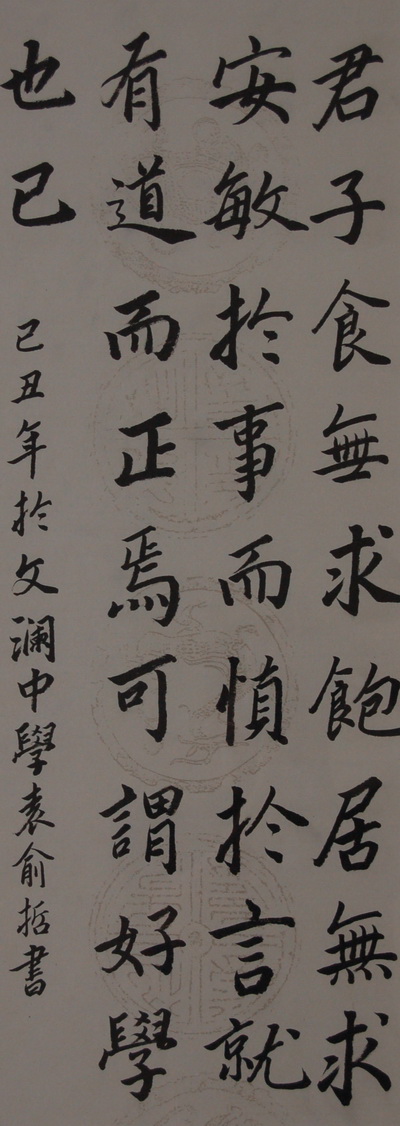 君子食無求飽居無求
安敏於事而慎於言就
有道而正焉可謂好學
也已
己丑年於文瀾中學袁俞哲書